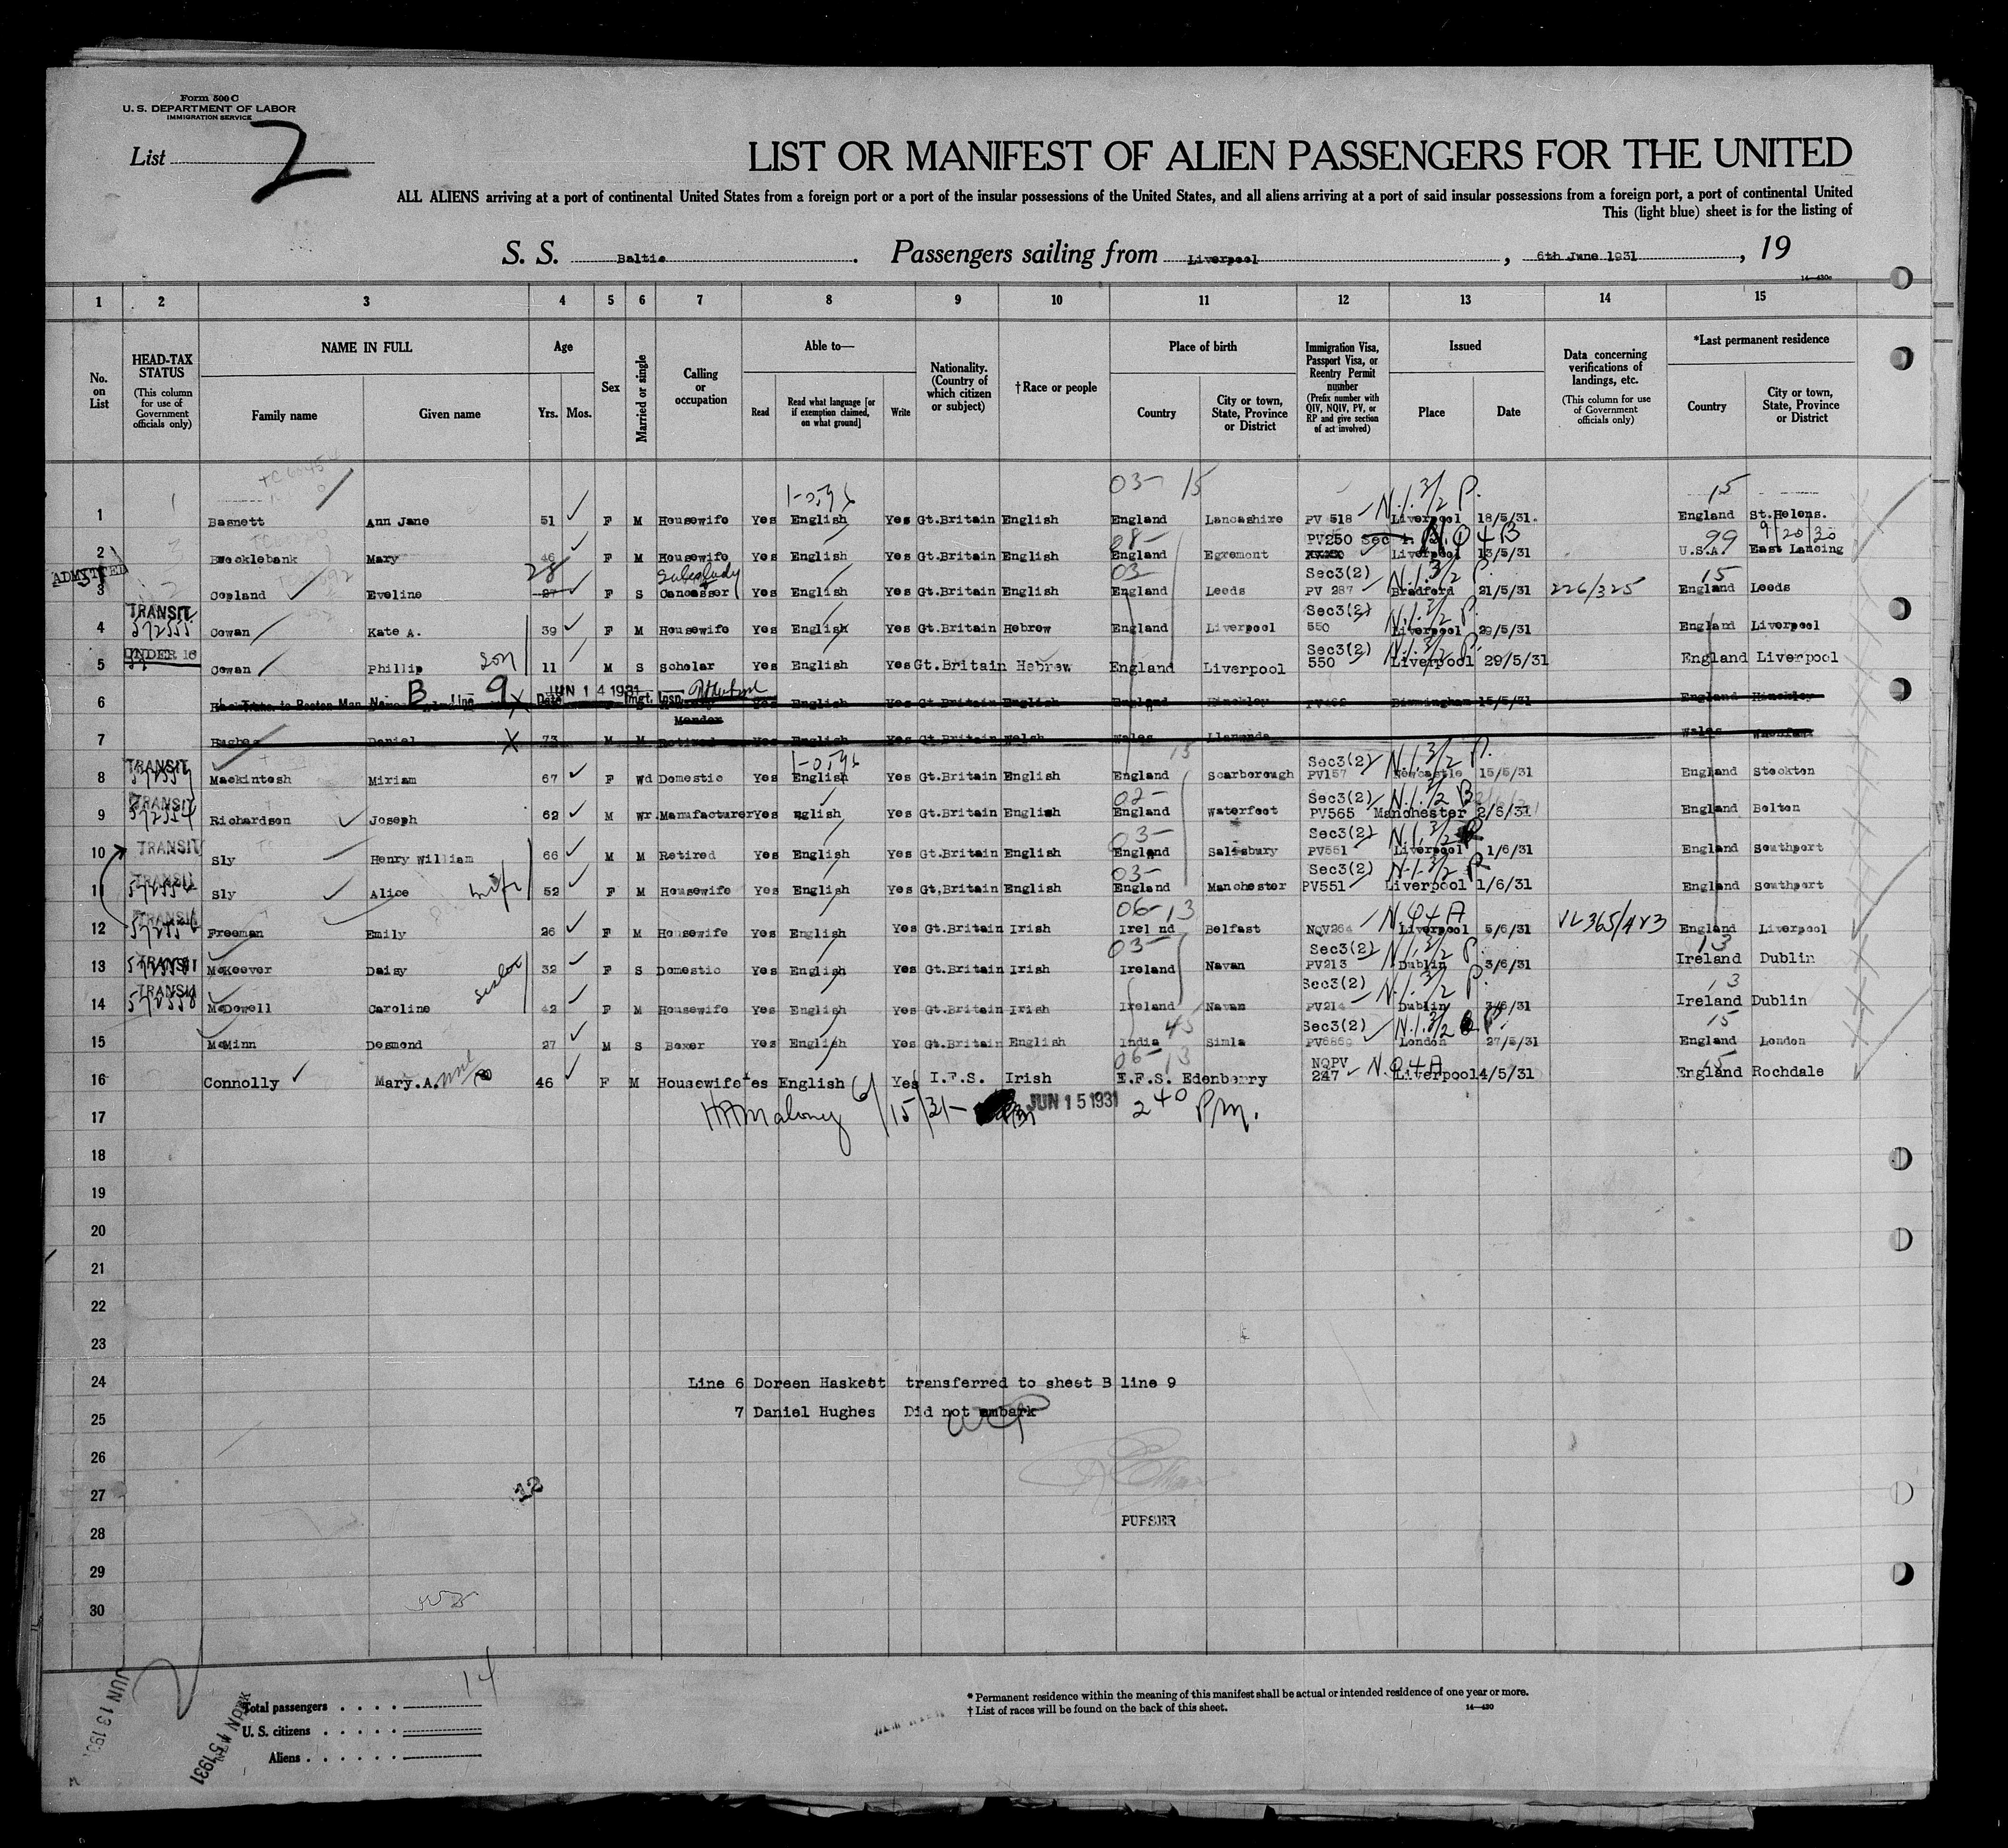 Form 500 C
U. S. DEPARTMENT OF LABOR
IMMIGRATION SERVICE
List 2
LIST OR MANIFEST OF ALIEN PASSENGERS FOR THE UNITED
ALL ALIENS arriving at a port of continental United States from a foreign port or a port of the insular possessions of the United States, and all aliens arriving at a port of said insular possessions from a foreign port, a port of continental United
This (light blue) sheet is for the listing of
S. S. Baltic. Passengers sailing from Liverpool, 6th June 1931, 19
14—430c
1 2 3 4 5 6 7 8 9 10 11 12 13 14 15
No. on List
HEAD-TAX STATUS (This column for use of Government officials only)
NAME IN FULL Family name Given name
Age Yrs. Mos.
Sex
Married or single
Calling or occupation
Able to— Read Read what language [or if exemption claimed, on what ground] Write
Nationality. (Country of which citizen or subject)
†Race or people
Place of birth Country City or town, State, Province or District
Immigration Visa, Passport Visa, or Reentry Permit number (Prefix number with QIV, NQIV, PV, or RP and give section of act involved)
Issued Place Date
Data concerning verifications of landings, etc. (This column for use of Government officials only)
*Last permanent residence Country City or town, State, Province or District
03- 15 N.I.3/2 P. 15
1 Basnett Ann Jane 51 F M Housewife Yes English Yes Gt.Britain English England Lancashire PV 518 Liverpool 18/5/31. England St.Helens.
08- PV250 Sec 99 9/20/30
2 Brocklebank Mary 46 F M Housewife Yes English Yes Gt.Britain English England Egremont Liverpool 13/5/31 U.S.A. East Lansing
ADMITTED 28 03- Sec3(2) N.I.3/2 P. 15
3 Copland Eveline 27 F S Yes English Yes Gt.Britain English England Leeds PV 287 Bradford 21/5/31 226/325 England Leeds
TRANSIT 572555 Sec3(2) N.I.3/2 P.
4 Cowan Kate A. 39 F M Housewife Yes English Yes Gt.Britain Hebrew England Liverpool 550 Liverpool 29/5/31 England Liverpool
UNDER 16 Sec3(2) N.I.3/2 P.
5 Cowan Phillip son 11 M S Scholar Yes English Yes Gt.Britain Hebrew England Liverpool 550 Liverpool 29/5/31 England Liverpool
B 9 JUN 14 1931
6 Yes English Yes Gt.Britain English England Hinckley Birmingham 15/5/31 England Hinckley
7 Hughes Daniel X 73 M M Retired Yes English Yes Gt.Britain Welsh Wales Llanwnda Wales
TRANSIT 15 Sec3(2) N.I.3/2 P.
8 Mackintosh Miriam 67 F Wd Domestic Yes English Yes Gt.Britain English England Scarborough PV157 Newcastle 15/5/31 England Stockton
TRANSIT 572554 02- Sec3(2) N.I.3/2
9 Richardson Joseph 62 M Wr. Manufacturer Yes nglish Yes Gt.Britain English England Waterfoot PV565 Manchester 2/6/31 England Bolton
TRANSIT 03- Sec3(2) N.I.3/2
10 Sly Henry William 66 M M Retired Yes English Yes Gt.Britain English England Salisbury PV551 Liverpool 1/6/31 England Southport
TRANSIT 03- Sec3(2) N.I.3/2 P
11 Sly Alice wife 52 F M Housewife Yes English Yes Gt.Britain English England Manchester PV551 Liverpool 1/6/31 England Southport
TRANSIT 572556 06-13 N.Q4A
12 Freeman Emily 26 F M Housewife Yes English Yes Gt.Britain Irish Irel nd Belfast NQV264 Liverpool 5/6/31 VL365/423 England Liverpool
TRANSIT 03- Sec3(2) N.I.3/2 P. 13
13 McKeever Daisy 32 F S Domestic Yes English Yes Gt.Britain Irish Ireland Navan PV213 Dublin 3/6/31 Ireland Dublin
TRANSIT 572558 sister Sec3(2) N.I.3/2 P. 13
14 McDowell Caroline 42 F M Housewife Yes English Yes Gt.Britain Irish Ireland Navan PV214 Dublin 3/6/31 Ireland Dublin
45 Sec3(2) N.I.3/2 P. 15
15 McMinn Desmond 27 M S Boxer Yes English Yes Gt.Britain English India Simla London 27/5/31 England London
06-13 NQPV N.Q4A 15
16 Connolly Mary.A. 46 F M Housewife Yes English Yes I.F.S. Irish E.F.S. Edenberry 247 Liverpool 4/5/31 England Rochdale
17 6/15/31- JUN 15 1931 2 40 P.M.
18
19
20
21
22
23
24 Line 6 Doreen Haskett transferred to sheet B line 9
25 7 Daniel Hughes Did not embark
26
27 12
28 PURSER
29
30
Total passengers . . . . 14
U. S. citizens . . . . .
Aliens . . . . . .
JUN 13 1931
JUN 15 1931
* Permanent residence within the meaning of this manifest shall be actual or intended residence of one year or more.
† List of races will be found on the back of this sheet.
14—430